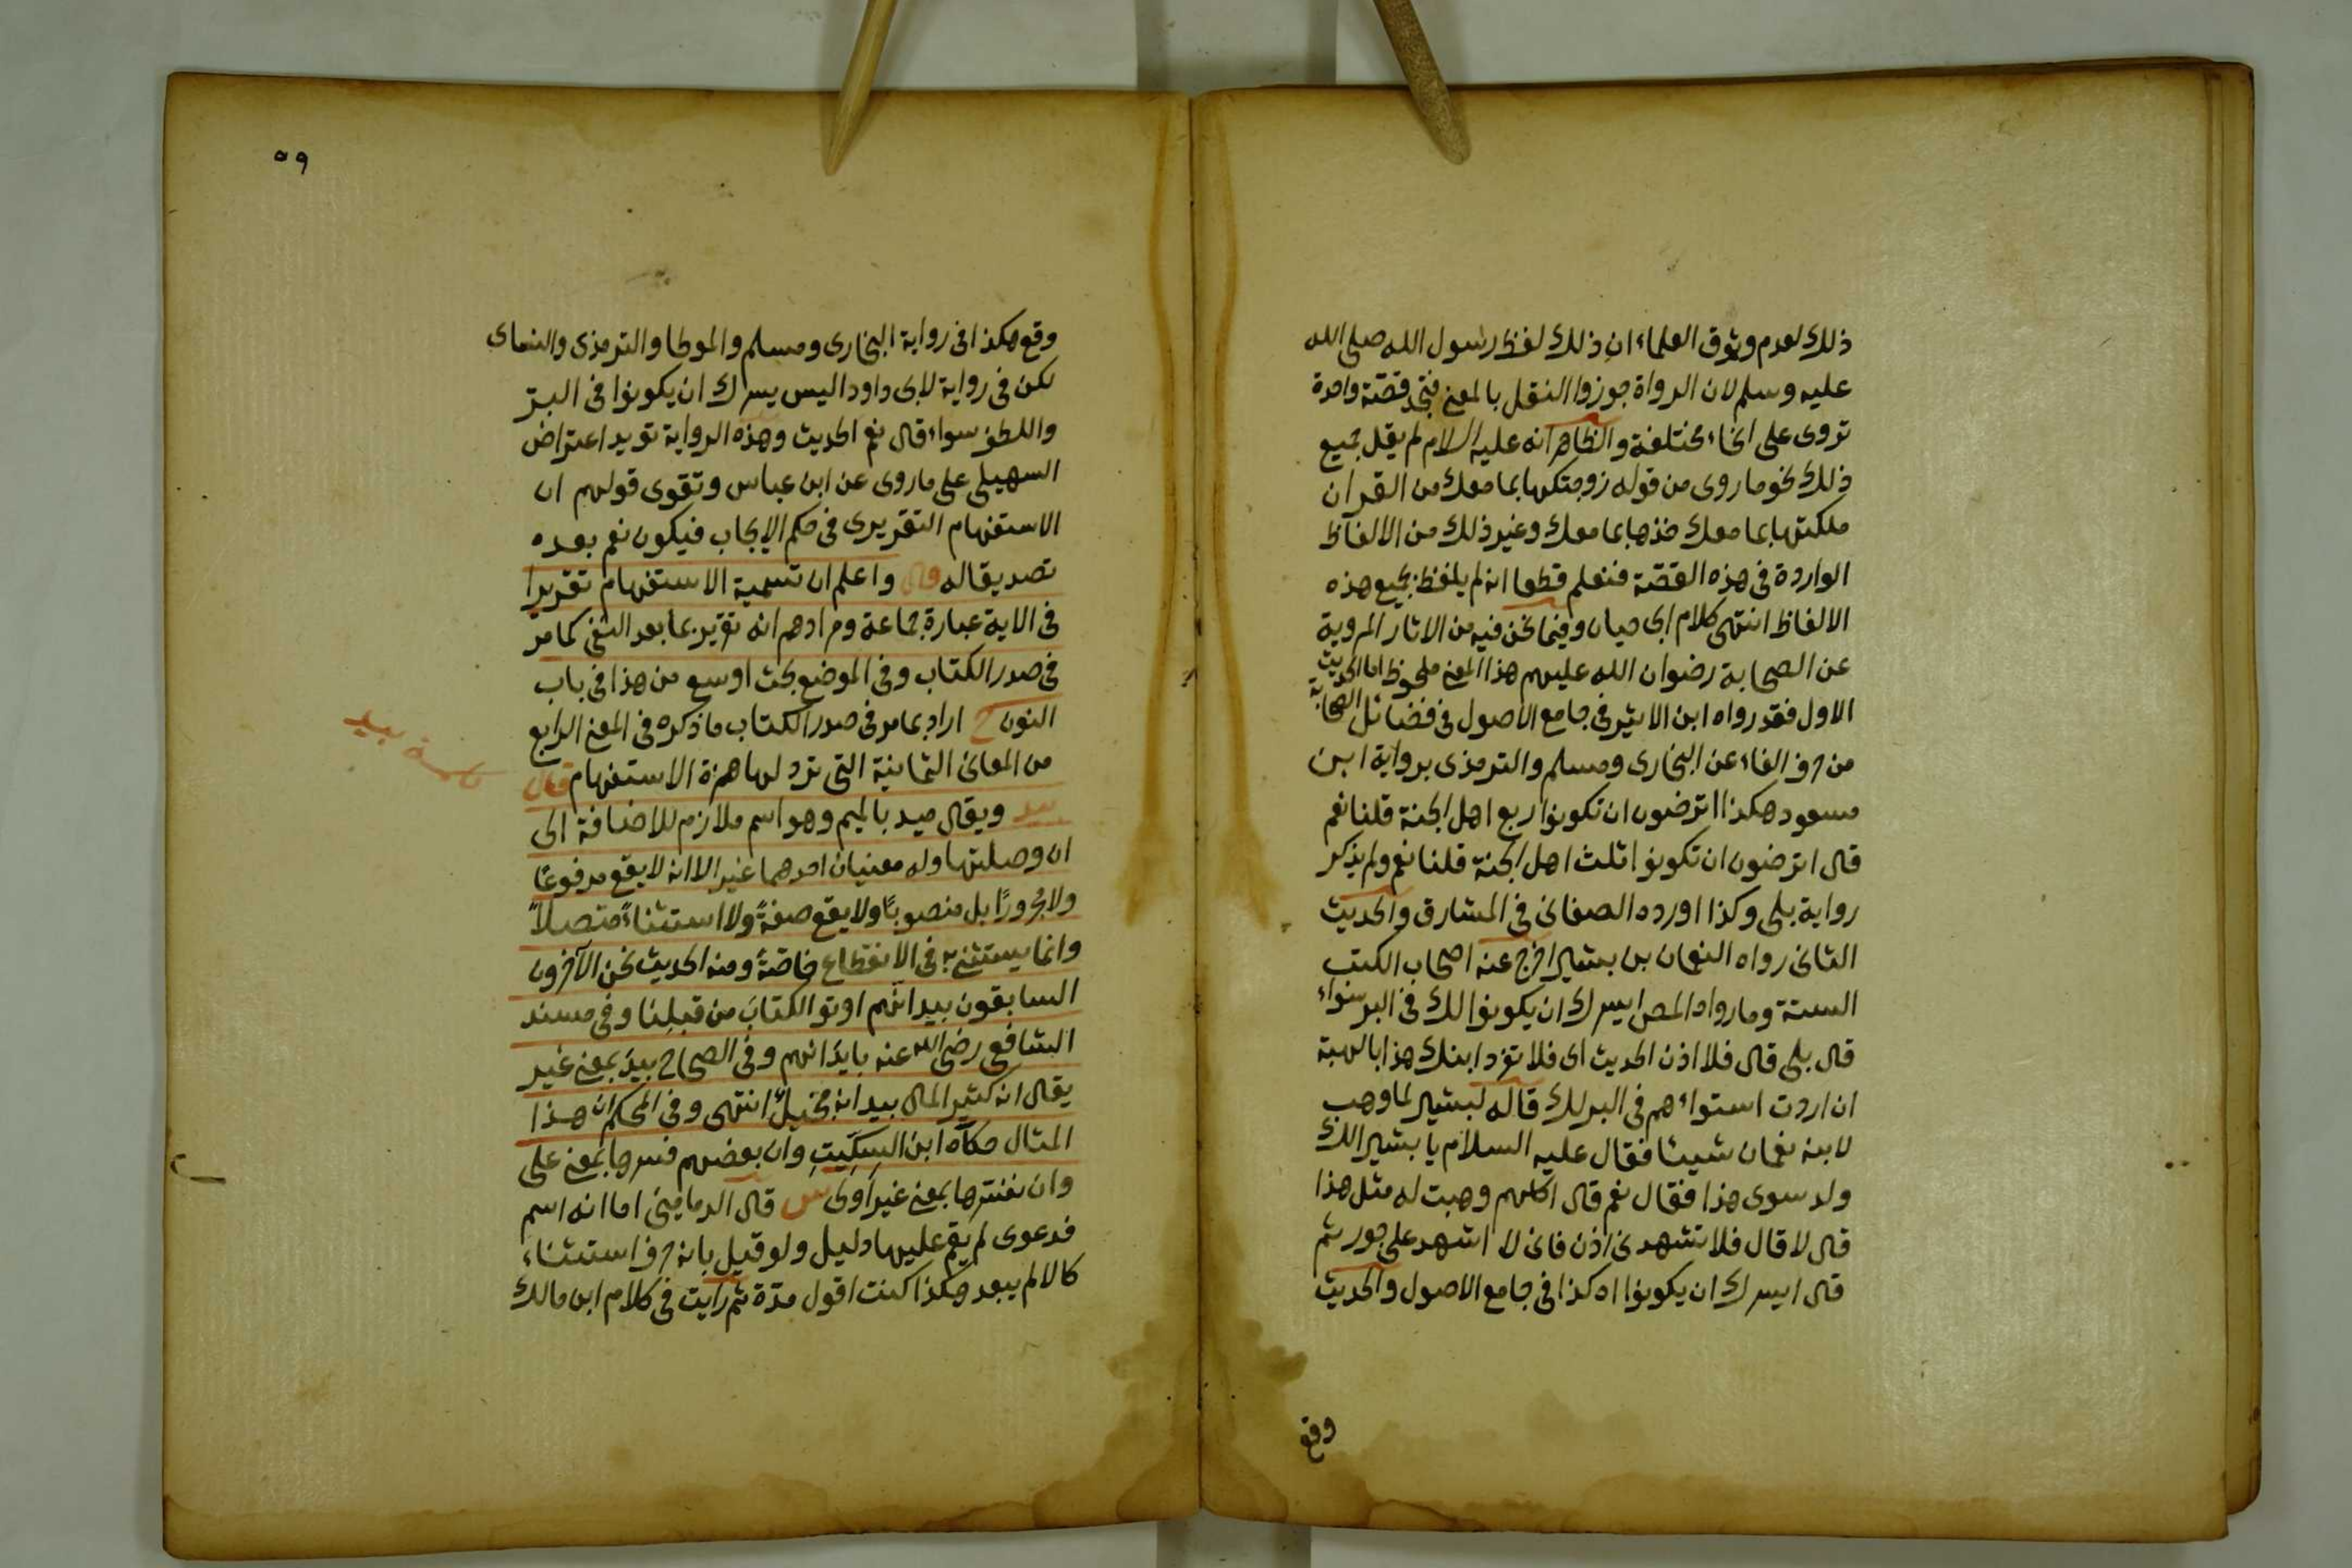 ذلك لعدم وثوق العلماء ان ذلك لفظ رسول الله صلى الله
عليه وسلم لان الرواة جوزوا النقل بالمعنى فتجد قصّة واحدة
تروى على انحاء مختلفة والظاهر انه عليه السلام لم يقل جميع
ذلك نحو ما روى من قوله زوجتكها بما معك من القرآن
ملكتها بما معك خذها بما معك وغير ذلك من الالفاظ
الواردة فى هذه القصّة فنعلم قطعا انه لم يلفظ بجميع هذه
الالفاظ انتهى كلام ابى حيان وفيما نحن فيه من الاثار المروية
عن الصحابة رضوان الله عليهم هذا المعنى ملحوظ اما الحديث
الاول فقد رواه ابن الاثير فى جامع الاصول فى فضائل الصحابة
من حرف الفاء عن البخارى ومسلم والترمذى برواية ابن
مسعود هكذا اترضون ان تكونوا ربع اهل الجنة قلنا نعم
قال اترضون ان تكونوا ثلث اهل الجنة قلنا نعم ولم يذكر
رواية بلى وكذا اورده الصغانى فى المشارق والحديث
الثانى رواه النعمان بن بشير اخرج عنه اصحاب الكتب
الستة وما رواه المص ايسرك ان يكونوا لك فى البر سواء
قال بلى قال فلا اذن الحديث اى فلا تفرد ابنك هذا بالهبة
ان اردت استواءهم فى البر لك قاله لبشير لما وهب
لابنه نعمان شيئا فقال عليه السلام يا بشير الك
ولد سوى هذا فقال نعم قال اكلهم وهبت له مثل هذا
قال لا قال فلا تشهدنى اذن فانى لا اشهد على جور ثم
قال ايسرك ان يكونوا اه كذا فى جامع الاصول والحديث
وقع
٥٩
وقع هكذا فى رواية البخارى ومسلم والموطا والترمذى والنساى
لكن فى رواية لابى داود اليس يسرك ان يكونوا فى البرّ
واللطف سواء قال نعم الحديث وهذه الرواية تويد اعتراض
السهيلى على ما روى عن ابن عباس وتقوى قولهم ان
الاستفهام التقريرى فى حكم الايجاب فيكون نعم بعده
تصديقا له قال واعلم ان تسمية الاستفهام تقريرا
فى الاية عبارة جماعة ومرادهم انه تقرير بما بعد النفى كما مرّ
فى صدر الكتاب وفى الموضع بحث اوسع من هذا فى باب
النون ح اراد بما مر فى صدر الكتاب ما ذكره فى المعنى الرابع
من المعانى الثمانية التى ترد لها همزة الاستفهام قال
كلمة بيد
بيد ويقال ميد بالميم وهو اسم ملازم للاضافة الى
ان وصلتها وله معنيان احدهما غير الا انه لا يقع مرفوعًا
ولا مجرورًا بل منصوبًا ولا يقع صفةً ولا استثناءً متصلاً
وانما يستثنى به فى الانقطاع خاصّةً ومنه الحديث نحن الآخرون
السابقون بيد انهم اوتو الكتاب من قبلنا وفى مسند
الشافعى رضى الله عنه بايد انهم وفى الصحاح بيد بمعنى غير
يقال انه كثير المال بيد انه بخيل انتهى وفى المحكم ان هذا
المثال حكاه ابن السكيت وان بعضهم فسرها بمعنى على
وان تفسيرها بمعنى غير اولى ش قال الدمامينى اما انه اسم
فدعوى لم يقم عليها دليل ولو قيل بانه حرف استثناء
كالا لم يبعد هكذا كنت اقول مدّة ثم رايت فى كلام ابن مالك